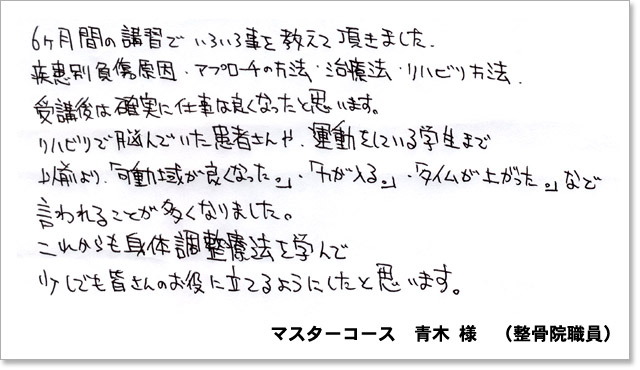 6ヶ月間の講習でいろいろ事を教えて頂きました.
疾患別負傷原因・アプローチの方法・治療法・リハビリ方法.
受講後は確実に仕事は良くなったと思います。
リハビリで悩んでいた患者さんや、運動をしている学生まで
以前より、「可動域が良くなった。」・「力が入る。」・「タイムが上がった。」などで
言われることが多くなりました。
これからも身体調整療法を学んで
少しでも皆さんのお役に立てるようにしたと思います。
マスターコース　青木 様　（整骨院職員）